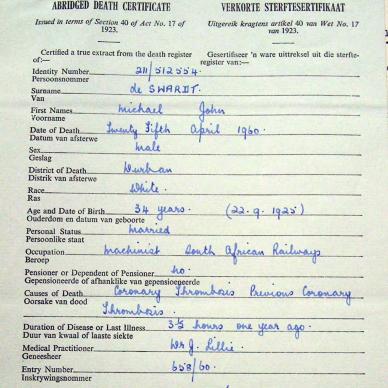 ABRIDGED DEATH CERTIFICATE VERKORTE STERFTESERTIFIKAAT
Issued in terms of Section 40 of Act No. 17 of 1923. Uitgereik kragtens artikel 40 van Wet No. 17 van 1923.
Certified a true extract from the death register of:— Gesertifiseer 'n ware uittreksel uit die sterfteregister van:—
Identity Number 211/512554.
Persoonsnommer
Surname de SWARDT.
Van
First Names Michael John
Voorname
Date of Death Twenty Fifth April 1960.
Datum van afsterwe
Sex male
Geslag
District of Death Durban
Distrik van afsterwe
Race White.
Ras
Age and Date of Birth 34 years. (22.9.1925)
Ouderdom en datum van geboorte
Personal Status married
Persoonlike staat
Occupation machinist South African Railways
Beroep
Pensioner or Dependent of Pensioner no.
Gepensioeneerde of afhanklike van gepensioeneerde
Causes of Death Coronary Thrombosis Previous Coronary
Oorsake van dood Thrombosis.
Duration of Disease or Last Illness hours one year ago.
Duur van kwaal of laaste siekte
Medical Practitioner Dr J. Lillie.
Geneesheer
Entry Number 658/60.
Inskrywingsnommer